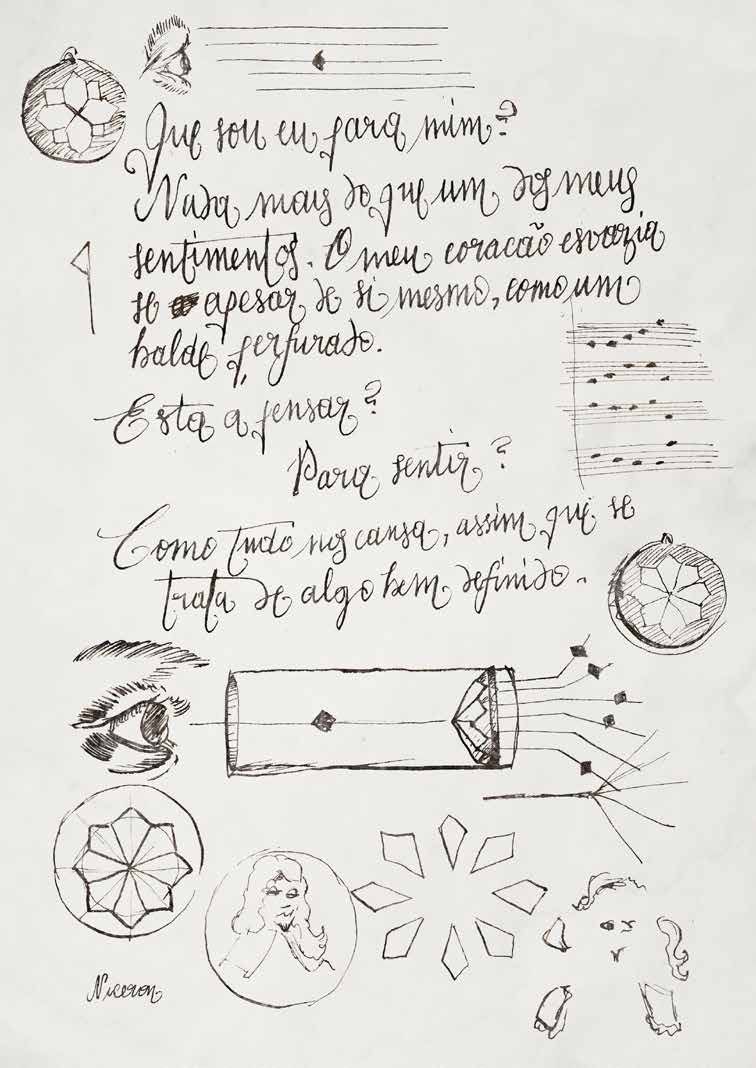 Que sou eu para mim?
Nada mais do que um dos meus
sentimentos. O meu coracão esvazia
se apesar de si mesmo, como um
balde perfurado.
Esta a pensar?
Para sentir?
Como tudo nos cansa, assim que se
trata de algo bem definido.
Niceron